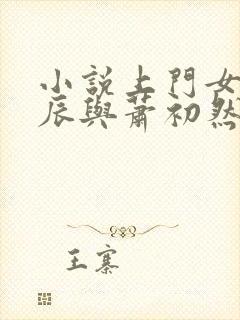 小說上門女
辰與蕭初然
王寨